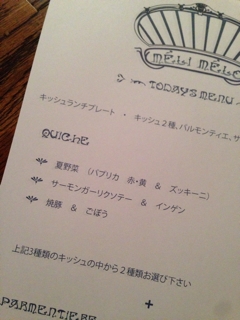 MÉLI MÉLO
TODAY'S MENU
キッシュランチプレート ・ キッシュ2種、パルモンティエ、サ
QUICHE
夏野菜 （パプリカ 赤・黄 & ズッキーニ）
サーモンガーリクソテー & インゲン
焼豚 & ごぼう
上記3種類のキッシュの中から2種類お選び下さい
+
PARMENTIER